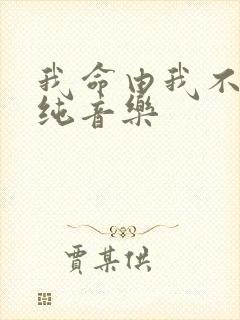 我命由我不
纯音樂
賈某供